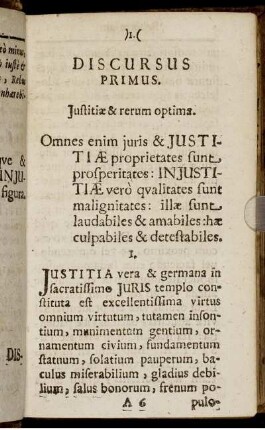 )1.(
DISCURSUS
PRIMUS.
Justitiæ & rerum optima.
Omnes enim juris & JUSTI-
TIÆ proprietates sunt
prosperitates: INJUSTI-
TIÆ verò qvalitates sunt
malignitates: illæ sunt
laudabiles & amabiles: hæ
culpabiles & detestabiles.
I.
JUSTITIA vera & germana in
sacratissimo JURIS templo con-
stituta est excellentissima virtus
omnium virtutum, tutamen inson-
tium, munimentum gentium, or-
namentum civium, fundamentum
statuum, solatium pauperum, ba-
culus miserabilium, gladius debi-
lium, salus bonorum, frenum po-
A 6 pulo-
qve &
INJU-
figura.
DIS-